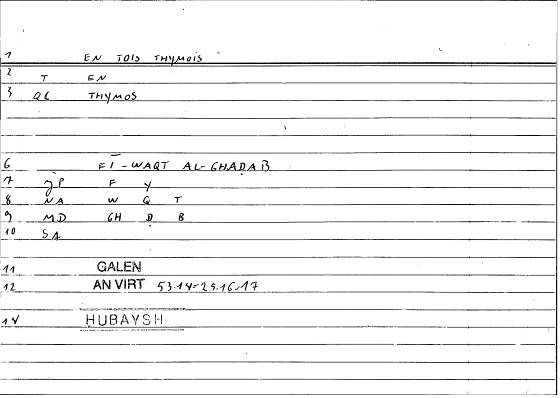 1 EN TOIS THYMOIS
2 T EN
3 QL THYMOS
6 FĪ-WAQT AL-GHAḌAB
7 JP F Y
8 NA W Q T
9 MD GH Ḍ B
10 SA
11 GALEN
12 AN VIRT 53.14=25.16,17
14 HUBAYSH